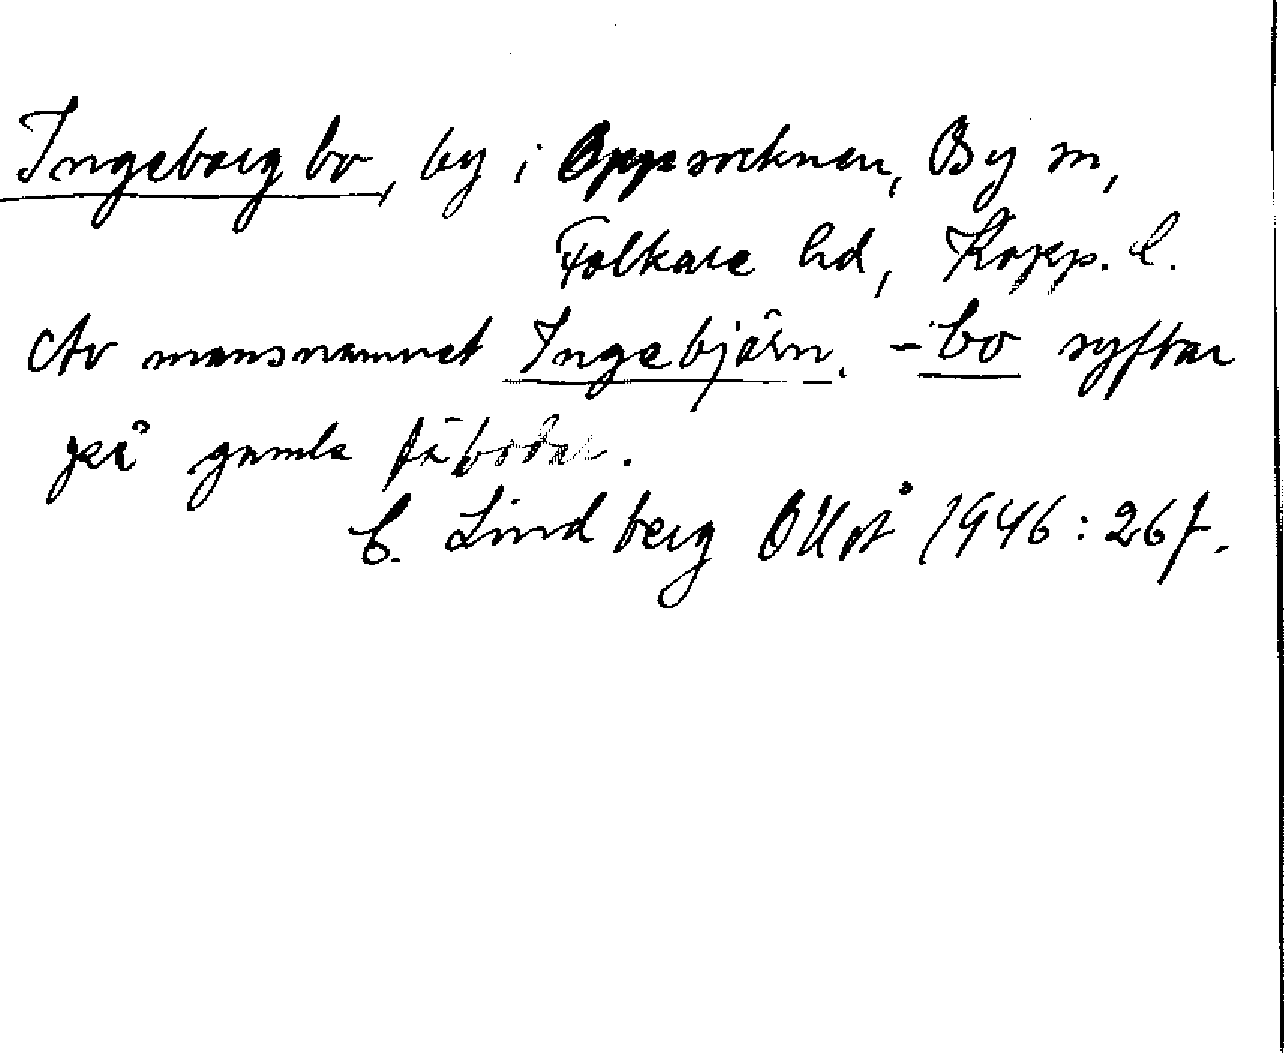 Ingeborgbo, by i Oppsocknen, By sn,
Folkare hd, Kopp. l.
Av mansnamnet Ingebjörn. -bo syftar
på gamla fäbodar.
C. Lindberg 1946: 26f.